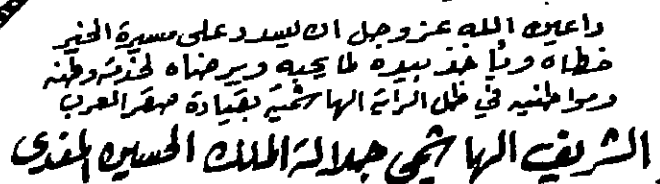 داعين الله عز وجل ان يسدد على مسيرة الخير
خطاه ويأخذ بيده لما يحبه ويرضاه لخدمة وطنه
ومواطنيه في ظل الراية الهاشمية بقيادة صقر العرب
الشريف الهاشمي جلالة الملك الحسين المفدى